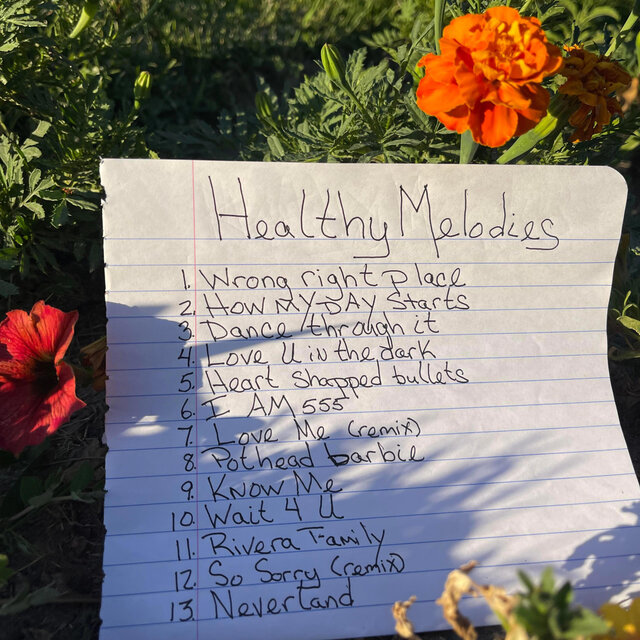 Healthy Melodies
1. Wrong right place
2. How MY DAY Starts
3. Dance through it
4. Love U in the dark
5. Heart Shapped bullets
6. I AM 555
7. Love Me (remix)
8. Pothead barbie
9. Know Me
10. Wait 4 U
11. Rivera Family
12. So Sorry (remix)
13. Neverland